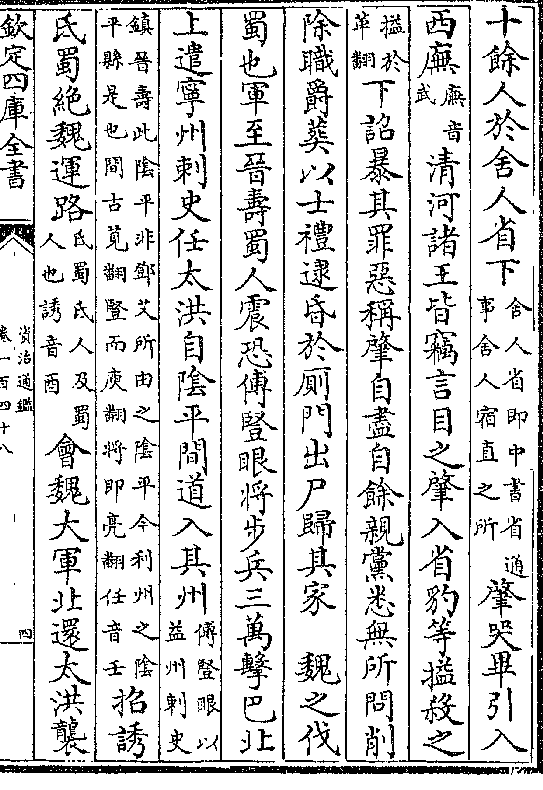 十餘人於舍人省下舍人省即中書省通事舍人宿直之所肇哭畢引入
西廡廡音武清河諸王皆竊言目之肇入省豹等搤殺之
搤於革翻下詔暴其罪惡稱肇自盡自餘親黨悉無所問削
除職爵葬以士禮逮昏於厠門出尸歸其家　魏之伐
蜀也軍至晉壽蜀人震恐傅豎眼將步兵三萬擊巴北
上遣寧州刺史任太洪自陰平間道入其州傅豎眼以益州刺史
鎮晉壽此陰平非鄧艾所由之陰平今利州之陰平縣是也間古莧翻豎而庾翻將即亮翻任音壬招誘
氐蜀絶魏運路氐蜀氐人及蜀人也誘音酉會魏大軍北還太洪襲
欽定四庫全書
資治通鑑
卷一百四十八
四